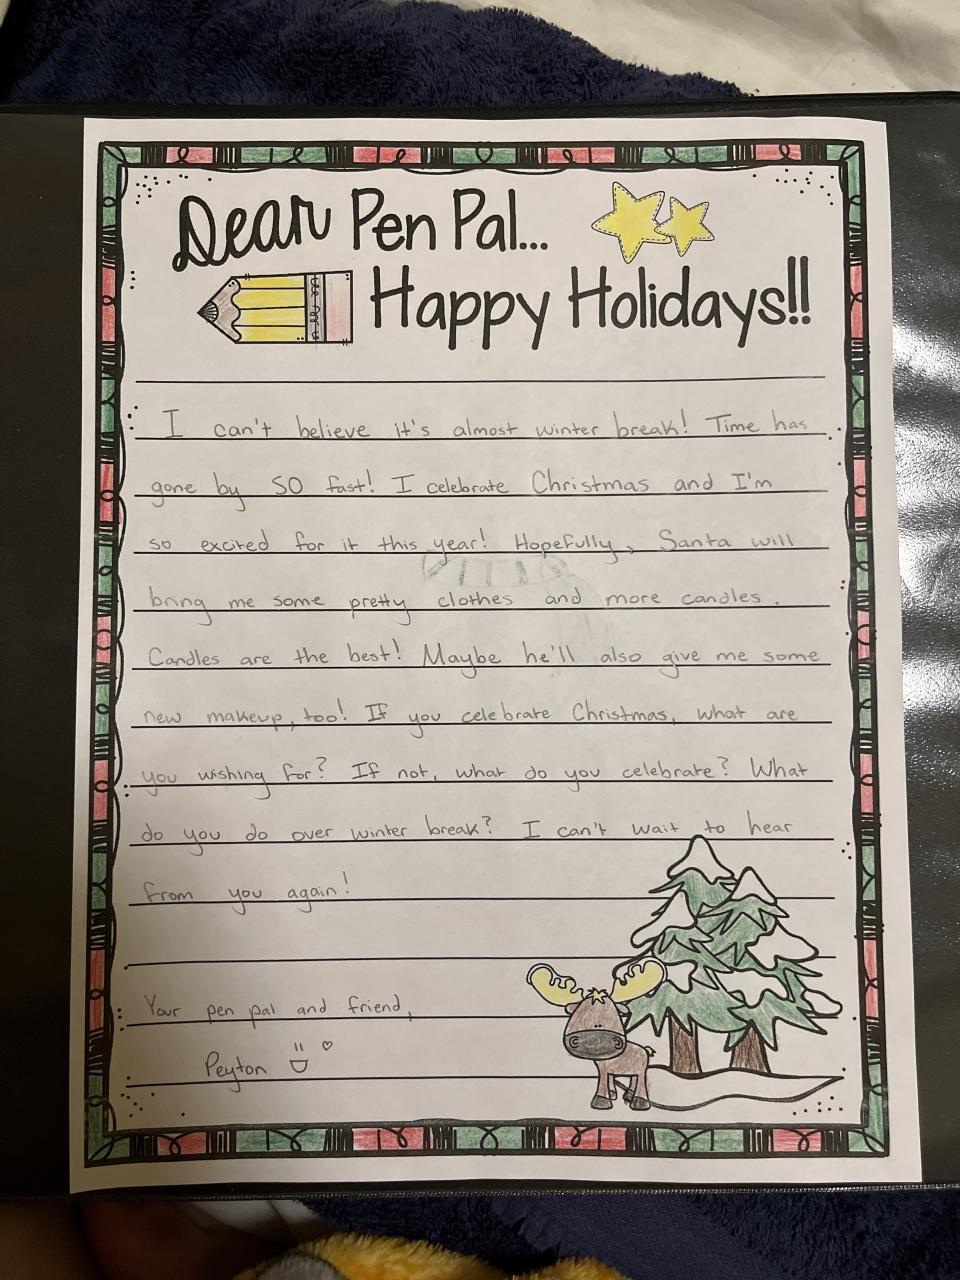 Dear Pen Pal...
Happy Holidays!!
I can't believe it's almost winter break! Time has
gone by SO fast! I celebrate Christmas and I'm
so excited for it this year! Hopefully, Santa will
bring me some pretty clothes and more candles.
Candles are the best! Maybe he'll also give me some
new makeup, too! If you celebrate Christmas, what are
you wishing for? If not, what do you celebrate? What
do you do over winter break? I can't wait to hear
from you again!
Your pen pal and friend,
Peyton